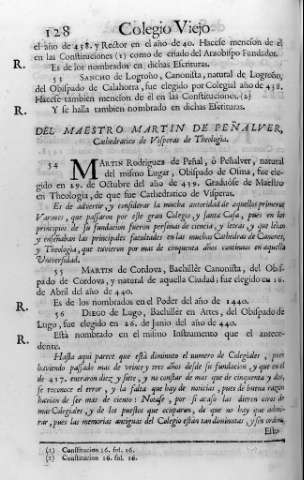 128 Colegio Viejo
el año de 438. y Rector en el año de 40. Hacese mencion de él
en las Constituciones (1) como de criado del Arzobispo Fundador.
R. Es de los nombrados en dichas Escrituras.
53 SANCHO de Logroño, Canonista, natural de Logroño,
del Obispado de Calahorra, fue elegido por Colegial año de 438.
Hacese tambien mencion de él en las Constituciones. (2)
R. Y se halla tambien nombrado en dichas Escrituras.
DEL MAESTRO MARTIN DE PEÑALVER,
Cathedratico de Visperas de Theologia.
54 MARTIN Rodriguez de Peñal, ò Peñalver, natural
del mismo Lugar, Obispado de Osma, fue ele-
gido en 29. de Octubre del año de 439. Graduòse de Maestro
en Theologia, de que fue Cathedratico de Visperas.
Es de advertir, y considerar la mucha autoridad de aquellos primeros
Varones, que passaron por este gran Colegio, y santa Casa, pues en los
principios de su fundacion fueron personas de ciencia, y letras, y que leían
y enseñaban las principales facultades en las muchas Cathedras de Canones,
y Theologia, que tuvieron por mas de cinquenta años continuos en aquella
Universidad.
55 MARTIN de Cordova, Bachillèr Canonista, del Obis-
pado de Cordova, y natural de aquella Ciudad; fue elegido en 16.
de Abril del año de 440.
R. Es de los nombrados en el Poder del año de 1440.
56 DIEGO de Lugo, Bachillèr en Artes, del Obispado de
Lugo, fue elegido en 26. de Junio del año de 440.
R. Està nombrado en el mismo Instrumento que el antece-
dente.
Hasta aqui parece que està diminuto el numero de Colegiales, pues
haviendo passado mas de veinte y tres años desde su fundacion, y que en el
de 417. entraron diez y siete, y no constar de mas que de cinquenta y dos,
se reconoce el error, y la falta que hay de noticias, pues de buena razon
havian de ser mas de ciento: Notase, por si acaso las dieren otros de
mas Colegiales, y de los puestos que ocuparon, de que no hay que admi-
rar, pues las memorias antiguas del Colegio están tan diminutas, y sin orden.
Este
(1) Constitucion 16. fol. 16.
(2) Constitucion 16. fol. 16.